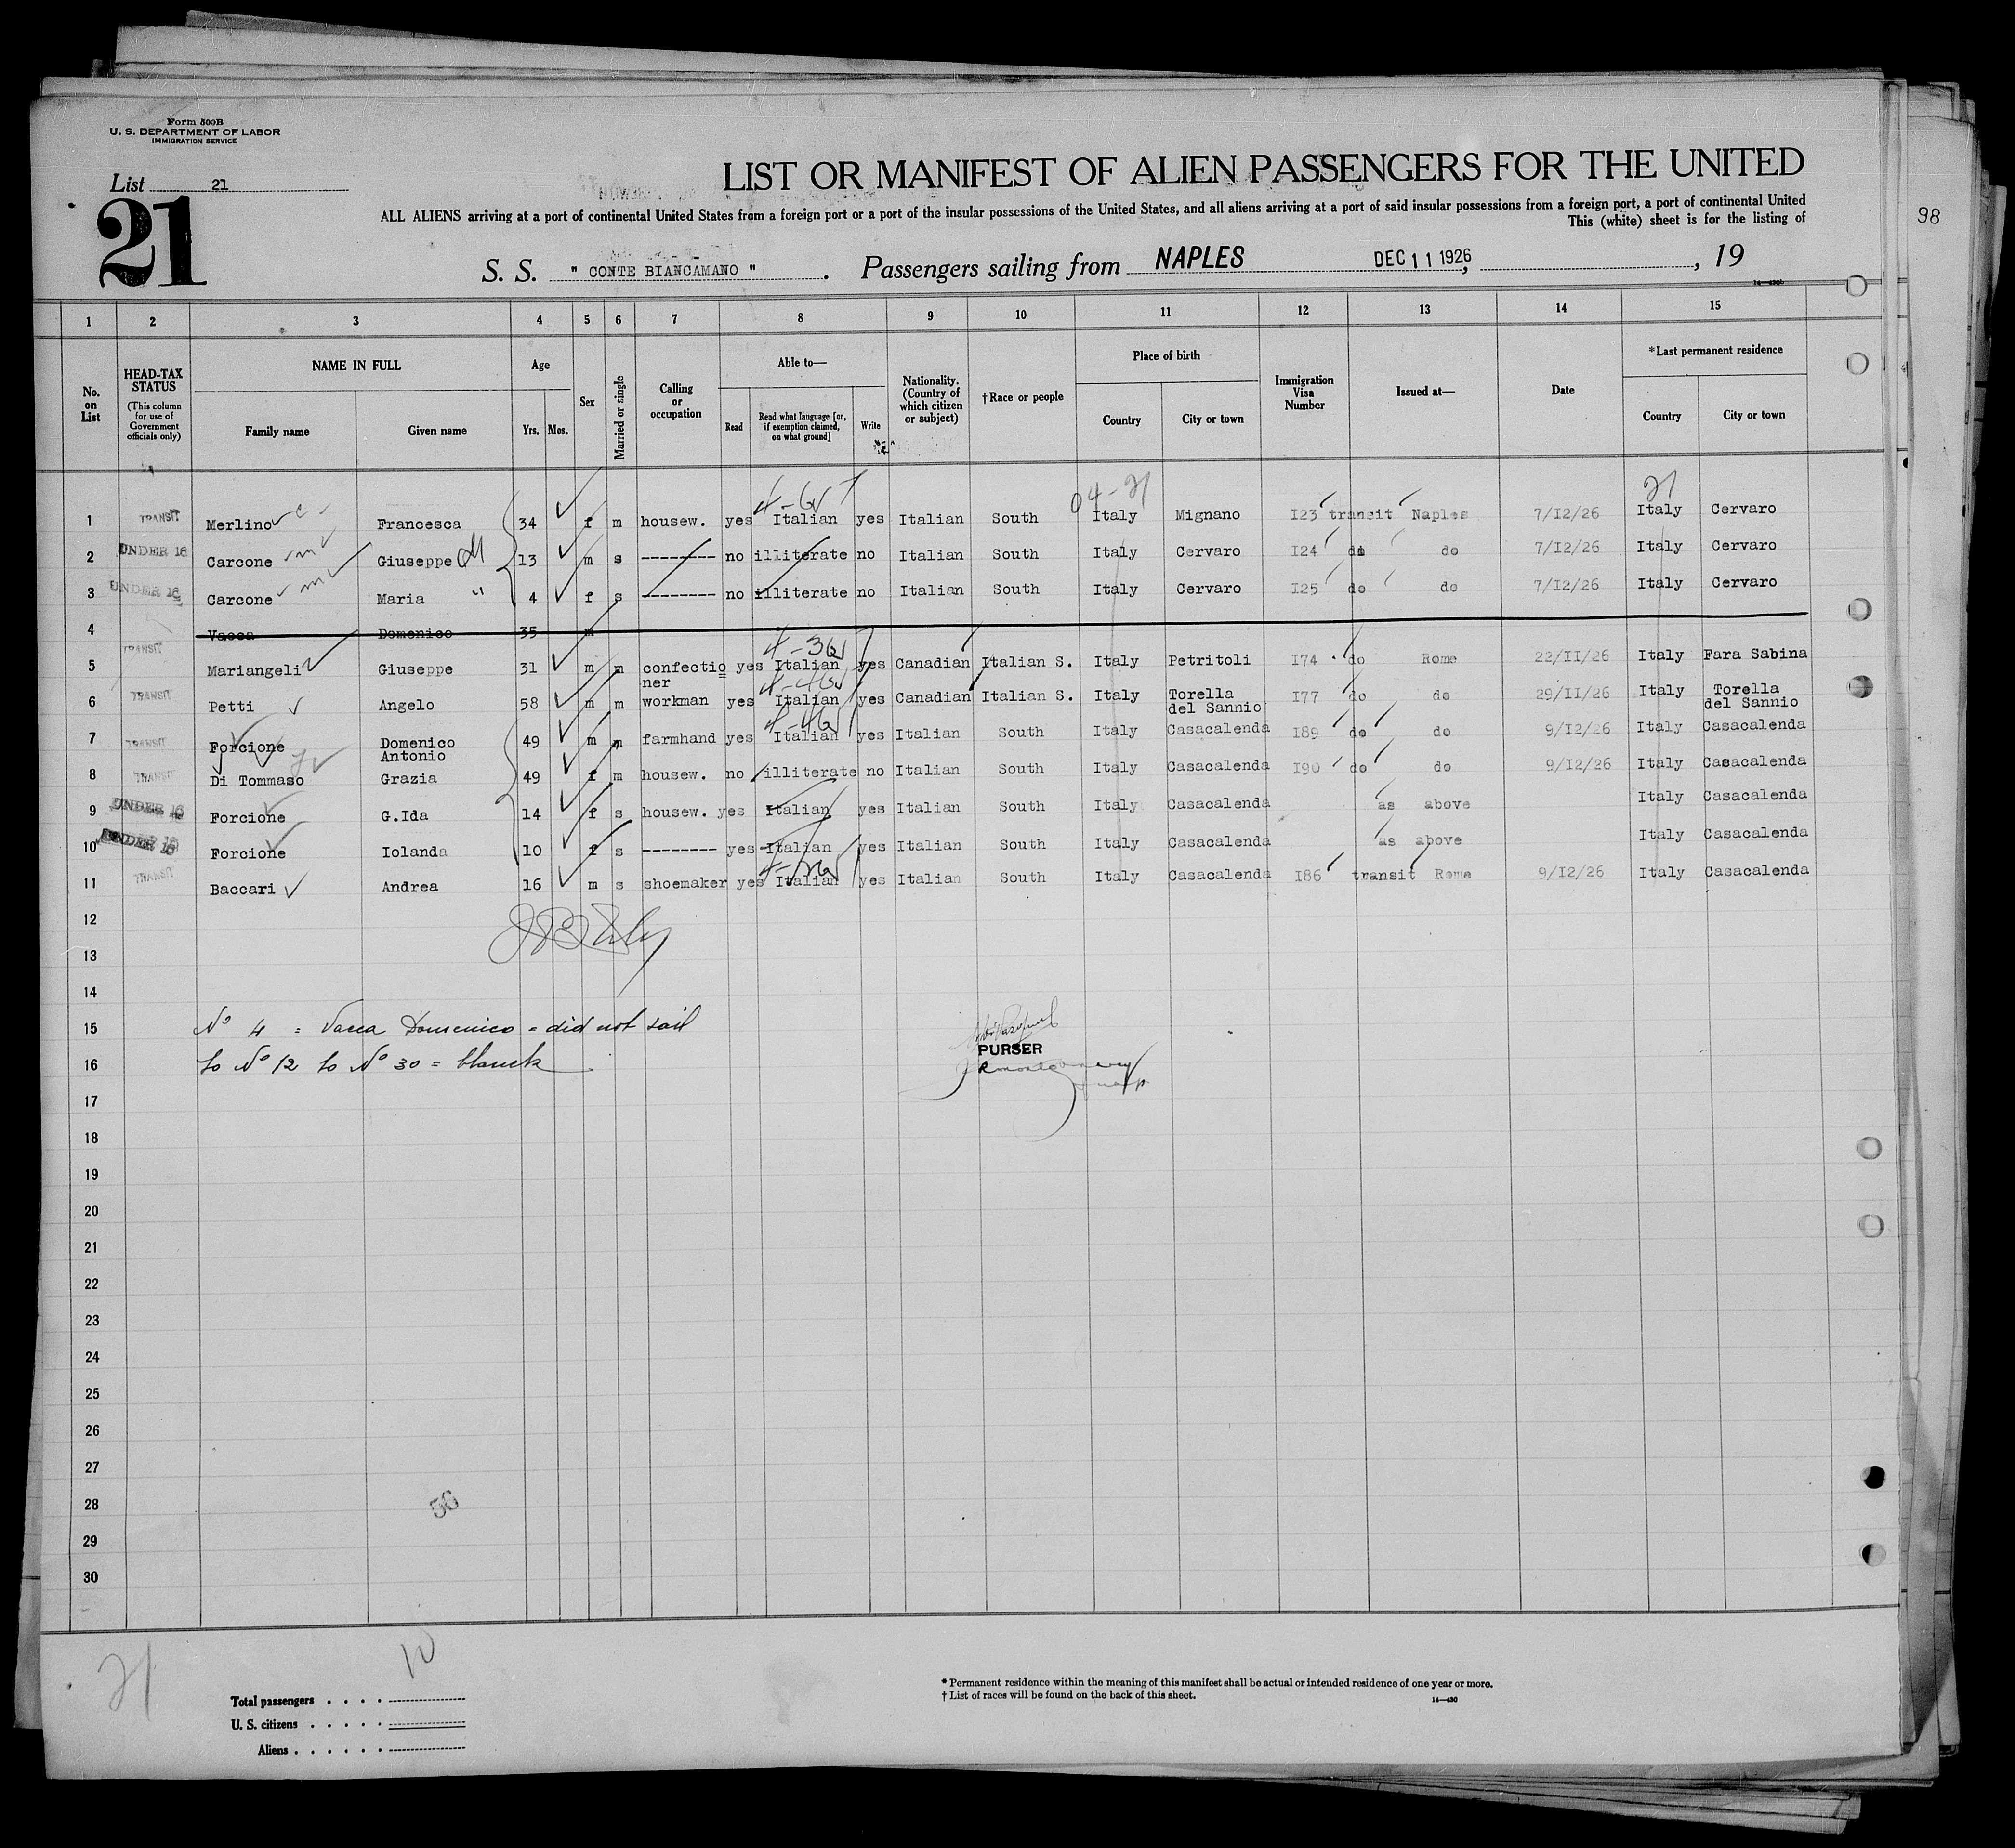 Form 500B
U. S. DEPARTMENT OF LABOR
IMMIGRATION SERVICE
List 21
21
LIST OR MANIFEST OF ALIEN PASSENGERS FOR THE UNITED
ALL ALIENS arriving at a port of continental United States from a foreign port or a port of the insular possessions of the United States, and all aliens arriving at a port of said insular possessions from a foreign port, a port of continental United
This (white) sheet is for the listing of
98
S. S. " CONTE BIANCAMANO " . Passengers sailing from NAPLES DEC 11 1926, , 19
1 2 3 4 5 6 7 8 9 10 11 12 13 14 15
No. on List
HEAD-TAX STATUS
(This column for use of Government officials only)
NAME IN FULL
Family name Given name
Age
Yrs. Mos.
Sex
Married or single
Calling or occupation
Able to—
Read
Read what language [or, if exemption claimed, on what ground]
Write
Nationality. (Country of which citizen or subject)
†Race or people
Place of birth
Country City or town
Immigration Visa Number
Issued at—
Date
*Last permanent residence
Country City or town
04-21 21
1 TRANSIT Merlino Francesca 34 f m housew. yes Italian yes Italian South Italy Mignano I23 transit Naples 7/I2/26 Italy Cervaro
2 UNDER 16 Carcone Giuseppe 13 m s -------- no illiterate no Italian South Italy Cervaro I24 do do 7/I2/26 Italy Cervaro
3 UNDER 16 Carcone Maria " 4 f s -------- no illiterate no Italian South Italy Cervaro I25 do do 7/I2/26 Italy Cervaro
4 Vacca Domenico 35 m
5 TRANSIT Mariangeli Giuseppe 31 m m confectio yes Italian yes Canadian Italian S. Italy Petritoli I74 do Rome 22/II/26 Italy Fara Sabina
ner
6 TRANSIT Petti Angelo 58 m m workman yes Italian yes Canadian Italian S. Italy Torella I77 do do 29/II/26 Italy Torella
del Sannio del Sannio
7 TRANSIT Forcione Domenico 49 m m farmhand yes Italian yes Italian South Italy Casacalenda I89 do do 9/I2/26 Italy Casacalenda
Antonio
8 TRANSIT Di Tommaso Grazia 49 f m housew. no illiterate no Italian South Italy Casacalenda I90 do do 9/I2/26 Italy Casacalenda
9 UNDER 16 Forcione G.Ida 14 f s housew. yes Italian yes Italian South Italy Casacalenda as above Italy Casacalenda
10 UNDER 16 Forcione Iolanda 10 f s -------- yes Italian yes Italian South Italy Casacalenda as above Italy Casacalenda
11 TRANSIT Baccari Andrea 16 m s shoemaker yes Italian yes Italian South Italy Casacalenda I86 transit Rome 9/I2/26 Italy Casacalenda
12
13
14
15 No 4 = Vacca Domenico = did not sail
PURSER
16 to No 12 to No 30 = blanck
17
18
19
20
21
22
23
24
25
26
27
28 56
29
30
21
10
Total passengers . . . .
U. S. citizens . . . . .
Aliens . . . . . .
* Permanent residence within the meaning of this manifest shall be actual or intended residence of one year or more.
† List of races will be found on the back of this sheet. 14—430